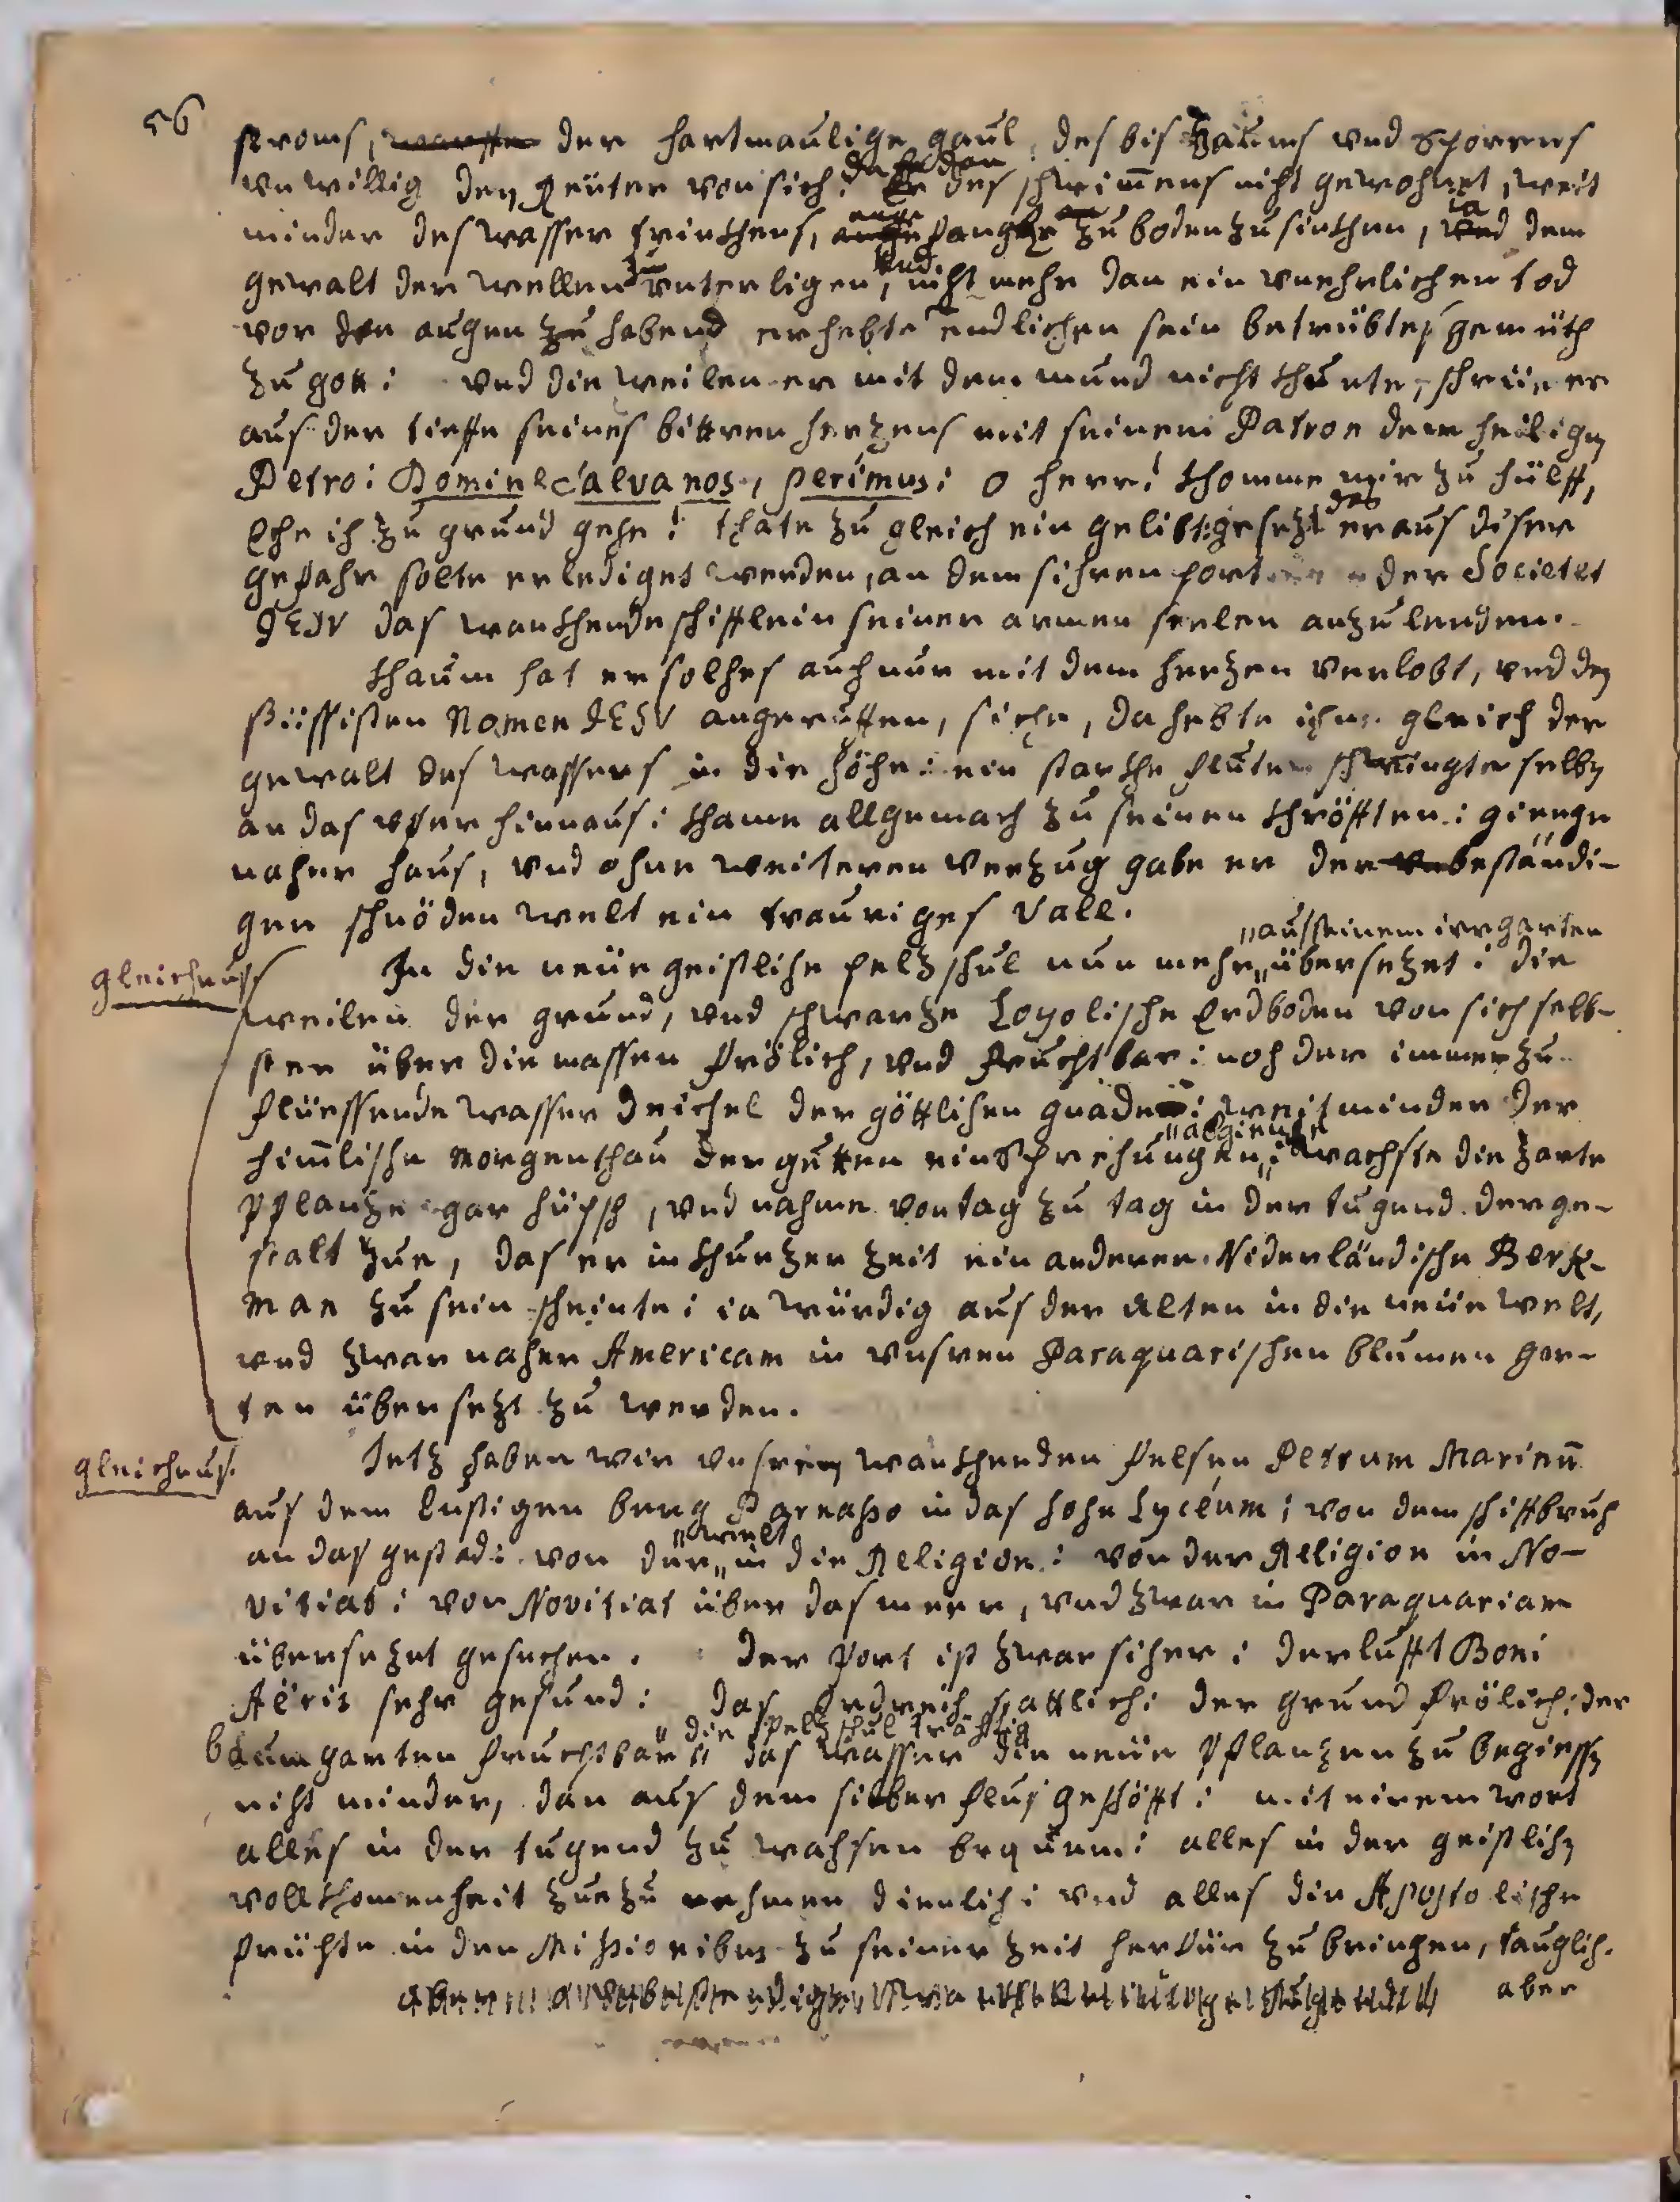 56
stroms, warffe der hartmaulige gaul, des bis Zaums vnd Sporrens
vnwillig den Reüter von sich: da er dan des schwimmens nicht gewohnet, weit
minder des wasser trinkhens, ange fangte an zu boden zu sinkhen, ia dem
gewalt der wellen zu vnterligen, vnd nicht mehr dan ein vnehrlichen tod
vor den augen habend erhebte endlichen sein betrübtes gemüth
zu gott: vnd die weilen er mit dem mund nicht khunte, schreie er
aus der tieffe seines bittren herzens mit seinem Patron dem heiligen
Petro: Domine salva nos, perimus: o herr! khomme mir zu hülff,
Ehe ich zu grund gehe! thate zu gleich ein gelibt: gesezt das er aus diser
gefahr solte erlediget werden, an dem sihren port der Societet
JESV das wankhende schifflein seiner armen seelen anzulenden.
Khaum hat er solches auch nur mit dem herzen verlobt, vnd den
süssisten Namen JESV angeruffen, sihe, da hebte ihne gleich der
gewalt des wassers in die höhe: ein starkhe fluten schwingte selben
an das vfer hinnaus: khame allgemach zu seinen khröfften: gienge
naher haus, vnd ohne weiteren verzug gabe er der vnbeständi-
gen schnöden welt ein trauriges Vale.
"aus seinem irrgarten
gleichnuss In die neüe geistliche pelzschul nun mehr "übersezet: die
weilen der grund, vnd schwarze Loyolische Erdboden von sich selb-
sten über die massen frölich, vnd fruchtbar: noch der immerzu
flüessende wasser Deichel der göttlichen gnaden: weit minder der
himlische Morgenthau der gutten einsprechungen "abgienge: wachste die zarte
Pflanze gar hüpsch, vnd nahme von tag zu tag in der tugend derge-
stalt zue, das er in khurzer zeit ein anderer Niderländische Berk-
man zu sein scheinte: ia würdig aus der Alten in die neüe welt,
vnd zwar naher Americam in vnsren Paraquarischen blumen gar-
ten übersezt zu werden.
gleichnus. Jetz haben wir vnsren wankhenden felsen Petrum Marinum
aus dem lustigen berg Parnasso in das hohe Lyceum: von dem schiffbruch
an das gestad: von der "welt in die Religion: von der Religion in No-
vitiat: von Novitiat über das meer, vnd zwar in Paraquariam
übersezet gesechen. Der port ist zwar sicher: der lufft Boni
Aëris sehr gesund: das Erdreich stattlich: der grund frölich: der
baumgarten fruchtbar: "die pelzschul träctig das wasser die neüe Pflanzen zu begiessen
nicht minder, dan aus dem silber flus geschöfft: mit einem wort
alles in der tugend zu wachsen bequem: alles in der geistlichen
vollkhomenheit zue zu nehmen dienlich: vnd alles die Apostolische
früchte in den Missionibus zu seiner zeit herfür zu bringen, tauglich.
aber